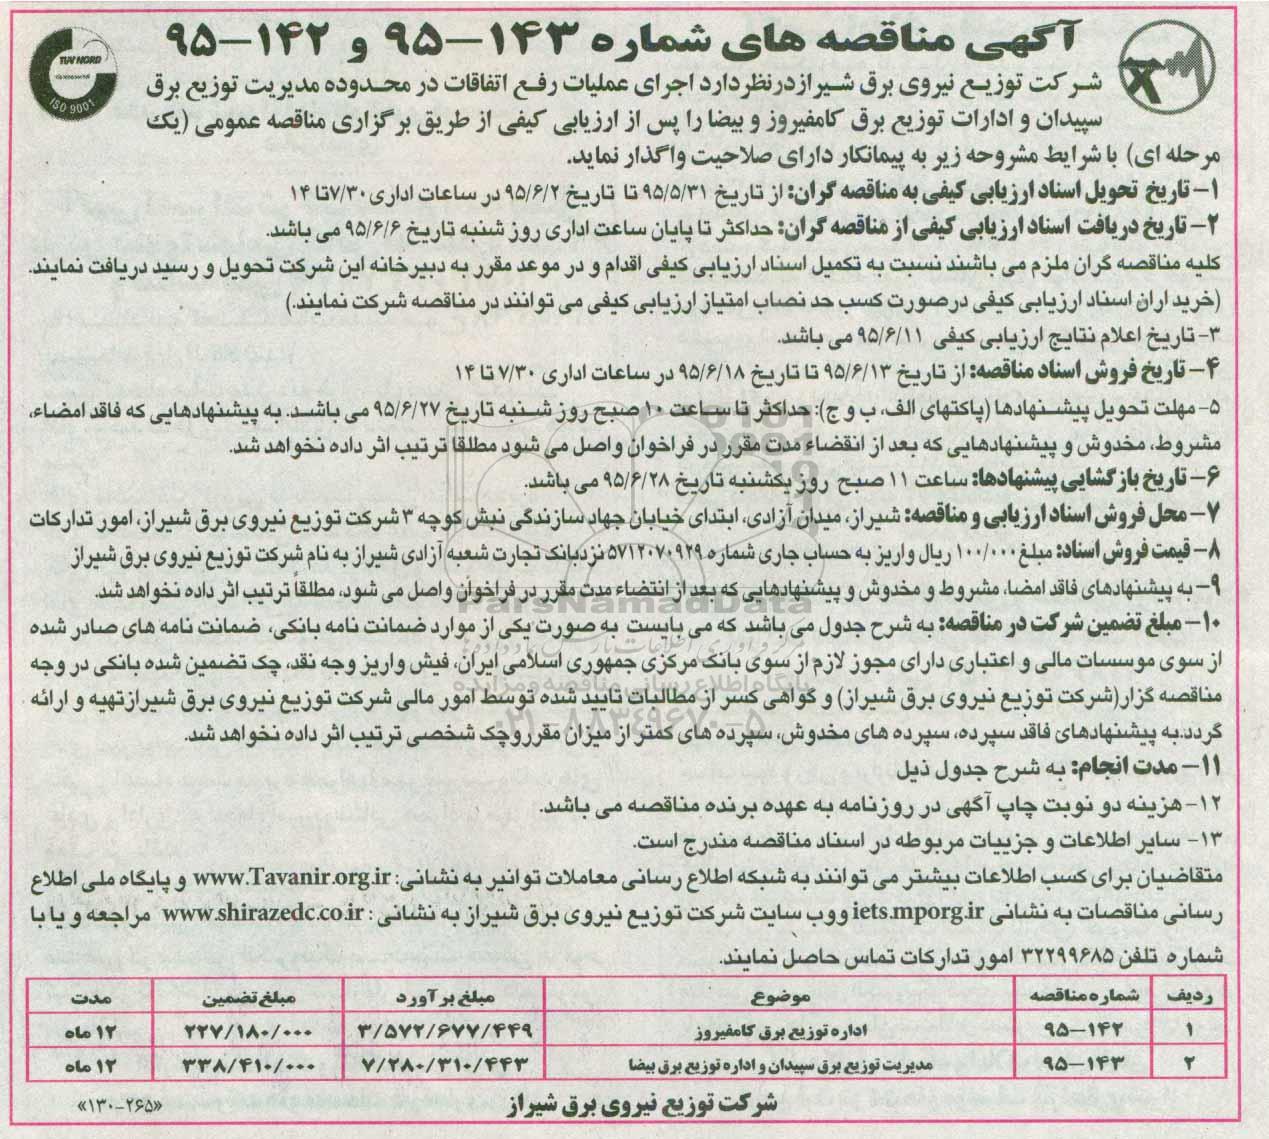 آگهی مناقصه های شماره ۱۴۳-۹۵ و ۱۴۲-۹۵
TUV NORD
ISO 9001
شرکت توزیع نیروی برق شیراز در نظر دارد اجرای عملیات رفع اتفاقات در محدوده مدیریت توزیع برق
سپیدان و ادارات توزیع برق کامفیروز و بیضا را پس از ارزیابی کیفی از طریق برگزاری مناقصه عمومی (یک
مرحله ای) با شرایط مشروحه زیر به پیمانکار دارای صلاحیت واگذار نماید.
۱- تاریخ تحویل اسناد ارزیابی کیفی به مناقصه گران: از تاریخ ۹۵/۵/۳۱ تا تاریخ ۹۵/۶/۲ در ساعات اداری ۷/۳۰ تا ۱۴
۲- تاریخ دریافت اسناد ارزیابی کیفی از مناقصه گران: حداکثر تا پایان ساعت اداری روز شنبه تاریخ ۹۵/۶/۶ می باشد.
کلیه مناقصه گران ملزم می باشند نسبت به تکمیل اسناد ارزیابی کیفی اقدام و در موعد مقرر به دبیرخانه این شرکت تحویل و رسید دریافت نمایند.
(خریداران اسناد ارزیابی کیفی درصورت کسب حد نصاب امتیاز ارزیابی کیفی می توانند در مناقصه شرکت نمایند.)
۳- تاریخ اعلام نتایج ارزیابی کیفی ۹۵/۶/۱۱ می باشد.
۴- تاریخ فروش اسناد مناقصه: از تاریخ ۹۵/۶/۱۳ تا تاریخ ۹۵/۶/۱۸ در ساعات اداری ۷/۳۰ تا ۱۴
۵- مهلت تحویل پیشنهادها (پاکتهای الف، ب و ج): حداکثر تا ساعت ۱۰ صبح روز شنبه تاریخ ۹۵/۶/۲۷ می باشد. به پیشنهادهایی که فاقد امضاء،
مشروط، مخدوش و پیشنهادهایی که بعد از انقضاء مدت مقرر در فراخوان واصل می شود مطلقا ترتیب اثر داده نخواهد شد.
۶- تاریخ بازگشایی پیشنهادها: ساعت ۱۱ صبح روز یکشنبه تاریخ ۹۵/۶/۲۸ می باشد.
۷- محل فروش اسناد ارزیابی و مناقصه: شیراز، میدان آزادی، ابتدای خیابان جهاد سازندگی نبش کوچه ۳ شرکت توزیع نیروی برق شیراز، امور تدارکات
۸- قیمت فروش اسناد: مبلغ ۱۰۰/۰۰۰ ریال واریز به حساب جاری شماره ۵۷۱۲۰۷۰۹۲۹ نزد بانک تجارت شعبه آزادی شیراز به نام شرکت توزیع نیروی برق شیراز
۹- به پیشنهادهای فاقد امضا، مشروط و مخدوش و پیشنهادهایی که بعد از انتضاء مدت مقرر در فراخوان واصل می شود، مطلقاً ترتیب اثر داده نخواهد شد.
ParsNamadData
۱۰- مبلغ تضمین شرکت در مناقصه: به شرح جدول می باشد که می بایست به صورت یکی از موارد ضمانت نامه بانکی، ضمانت نامه های صادر شده
از سوی موسسات مالی و اعتباری دارای مجوز لازم از سوی بانک مرکزی جمهوری اسلامی ایران، فیش واریز وجه نقد، چک تضمین شده بانکی در وجه
پایگاه اطلاع رسانی مناقصه و مزایده
مناقصه گزار(شرکت توزیع نیروی برق شیراز) و گواهی کسر از مطالبات تایید شده توسط امور مالی شرکت توزیع نیروی برق شیراز تهیه و ارائه
۰۲۱-۸۸۳۴۹۶۷۰-۵
گردد.به پیشنهادهای فاقد سپرده، سپرده های مخدوش، سپرده های کمتر از میزان مقرر و چک شخصی ترتیب اثر داده نخواهد شد.
۱۱- مدت انجام: به شرح جدول ذیل
۱۲- هزینه دو نوبت چاپ آگهی در روزنامه به عهده برنده مناقصه می باشد.
۱۳- سایر اطلاعات و جزییات مربوطه در اسناد مناقصه مندرج است.
متقاضیان برای کسب اطلاعات بیشتر می توانند به شبکه اطلاع رسانی معاملات توانیر به نشانی: www.Tavanir.org.ir و پایگاه ملی اطلاع
رسانی مناقصات به نشانی iets.mporg.ir ووب سایت شرکت توزیع نیروی برق شیراز به نشانی : www.shirazedc.co.ir مراجعه و یا با
شماره تلفن ۳۲۲۹۹۶۸۵ امور تدارکات تماس حاصل نمایند.
ردیف شماره مناقصه موضوع مبلغ برآورد مبلغ تضمین مدت
۱ ۱۴۲-۹۵ اداره توزیع برق کامفیروز ۳/۵۷۲/۶۷۷/۴۴۹ ۲۲۷/۱۸۰/۰۰۰ ۱۲ ماه
۲ ۱۴۳-۹۵ مدیریت توزیع برق سپیدان و اداره توزیع برق بیضا ۷/۲۸۰/۳۱۰/۴۴۳ ۳۳۸/۴۱۰/۰۰۰ ۱۲ ماه
شرکت توزیع نیروی برق شیراز
«۱۳۰-۲۶۵»